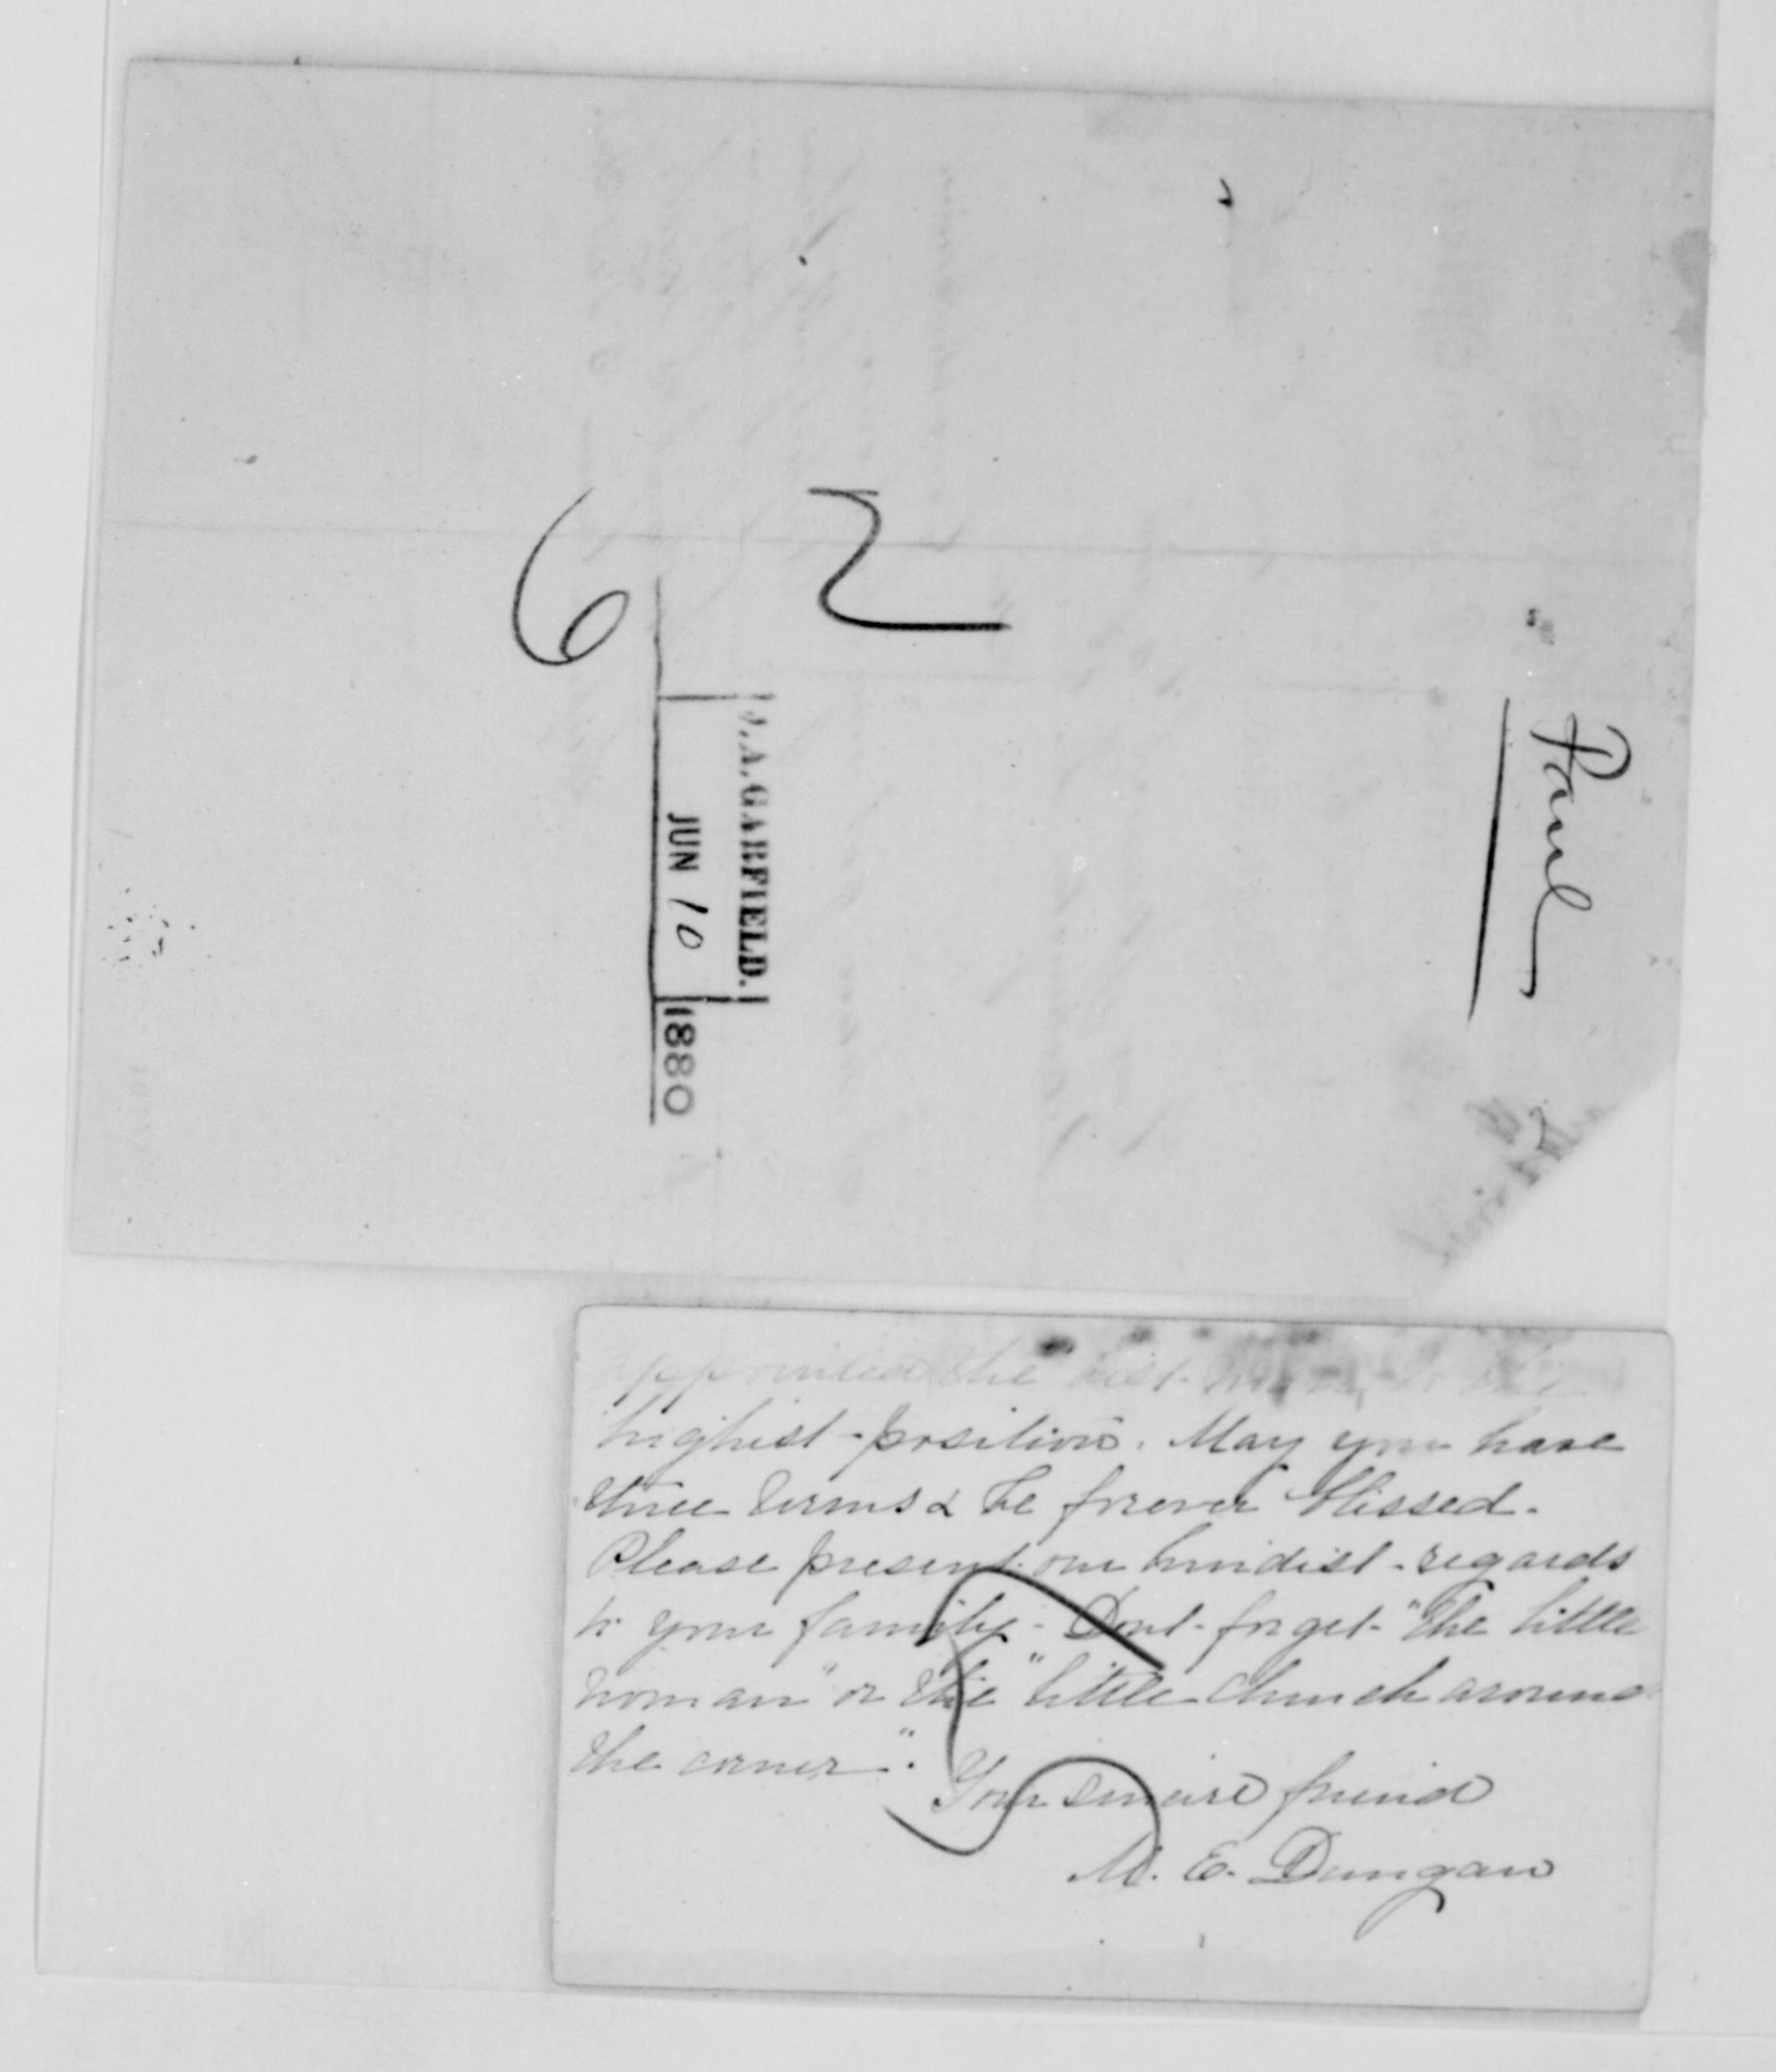 Paul
2
J.A. GARFIELD.
JUN 10 1880
6
appointed the best man to the
highest position. May you have
three terms & be forever blessed.
Please present our kindest regards
to your family - Dont forget "the little
woman" or the "little church around
the corner".
Your sincere friend
M. E. Dungan